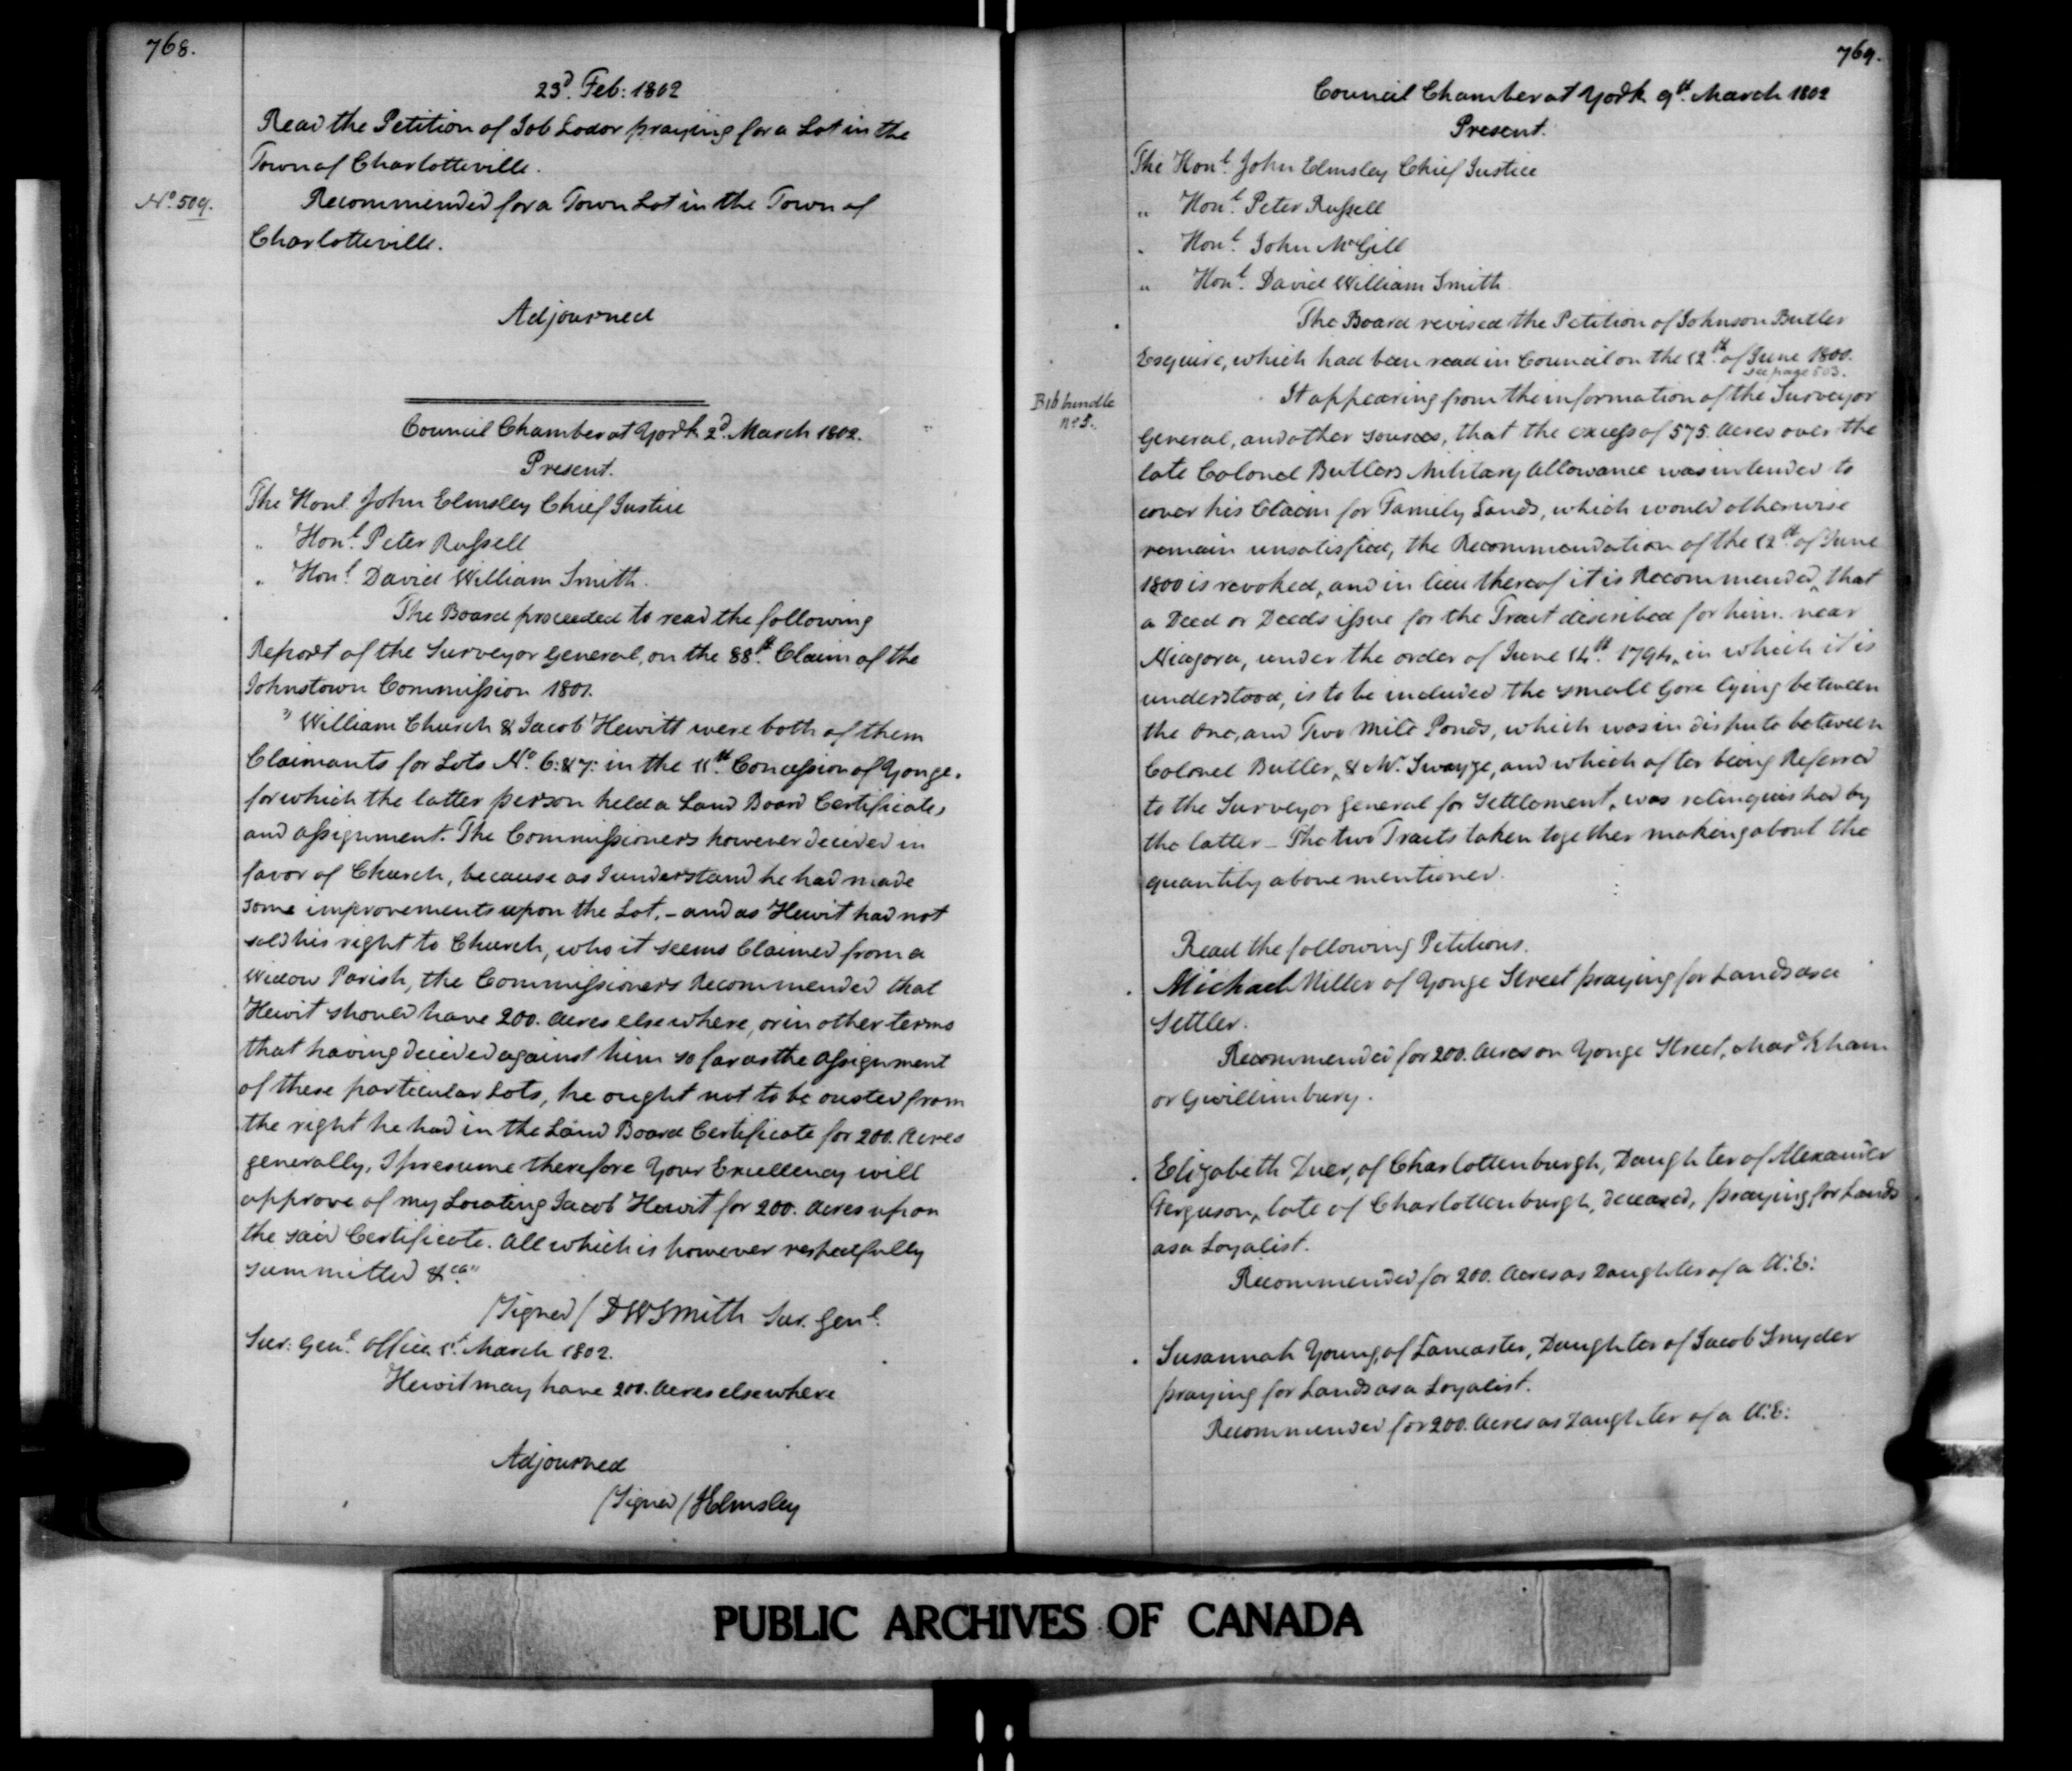 768.
23d. Feb: 1802
Read the Petition of Job Lodor praying for a Lot in the
Town of Charlotteville.
No. 509.
Recommended for a Town Lot in the Town of
Charlotteville.
Adjourned
Council Chamber at York 2d. March 1802.
Present.
The Honl. John Elmsley Chief Justice
" Honl. Peter Russell
" Honl. David William Smith.
The Board proceeded to read the following
Report of the Surveyor General, on the 88th. Claim of the
Johnstown Commission 1801.
" William Church & Jacob Hewitt were both of them
Claimants for Lots No. 6: & 7: in the 11th. Concession of Yonge.
for which the latter person held a Land Board Certificate,
and assignment. The Commissioners however decided in
favor of Church, because as I understand he had made
some improvements upon the Lot. - and as Hewit had not
sold his right to Church, who it seems Claimed from a
Widow Parish, the Commissioners Recommended that
Hewit should have 200. Acres elsewhere, or in other terms
that having decided against him so far as the assignment
of these particular Lots, he ought not to be ousted from
the right he had in the Land Board Certificate for 200. Acres
generally, I presume therefore Your Excellency will
approve of my Locating Jacob Hewit for 200. Acres upon
the said Certificate. All which is however respectfully
summitted &ca."
/Signed/ DWSmith Sur. Genl.
Sur: Genl. Office 1st. March 1802.
Hewit may have 200. Acres elsewhere
Adjourned
/Signed/ JElmsley
769.
Council Chamber at York 9th. March 1802
Present.
The Honl. John Elmsley Chief Justice
" Honl. Peter Russell
" Honl. John McGill
" Honl. David William Smith
The Board revised the Petition of Johnson Butler
Esquire, which had been read in Council on the 12th. of June 1800.
see page 503.
B16 bundle
no 5.
It appearing from the information of the Surveyor
General, and other sources, that the excess of 575. Acres over the
late Colonel Butlers Military Allowance was intended to
cover his Claim for Family Lands, which would otherwise
remain unsatisfied, the Recommendation of the 12th. of June
1800 is revoked, and in lieu thereof it is Recommended, that
a Deed or Deeds issue for the Tract described for him near
Niagara, under the order of June 14th. 1794, in which it is
understood, is to be included the small Gore lying between
the One, and Two Mile Ponds, which was in dispute between
Colonel Butler, & Mr. Swayze, and which after being Referred
to the Surveyor General for Settlement, was relinquished by
the latter - The two Tracts taken together making about the
quantity above mentioned.
Read the following Petitions.
Michael Miller of Yonge Street praying for Lands as a
Settler.
Recommended for 200. Acres on Yonge Street, Markham
or Gwillimbury.
Elizabeth Duer, of Charlottenburgh, Daughter of Alexander
Ferguson, late of Charlottenburgh, deceased, praying for Lands
as a Loyalist.
Recommended for 200. Acres as Daughter of a U:E:
Susannah Young, of Lancaster, Daughter of Jacob Snyder
praying for Lands as a Loyalist.
Recommended for 200. Acres as Daughter of a U:E:
PUBLIC ARCHIVES OF CANADA